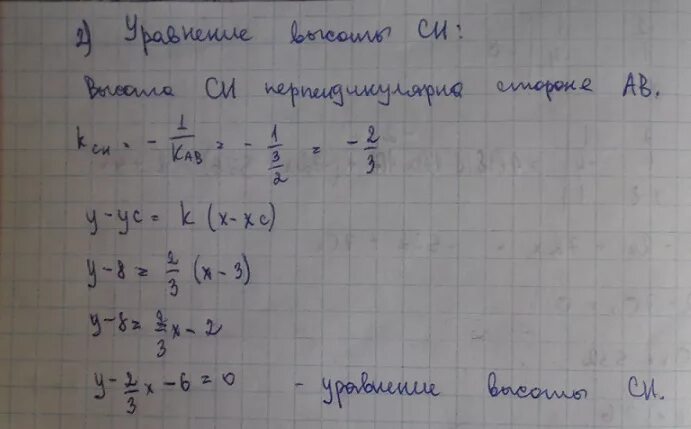 2) Уравнение высоты CH:
Высота CH перпендикулярна стороне AB.
k_CH = - 1/K_AB = - 1/(3/2) = - 2/3
y - yc = k (x - xc)
y - 8 = 2/3 (x - 3)
y - 8 = 2/3 x - 2
y - 2/3 x - 6 = 0 - уравнение высоты CH.